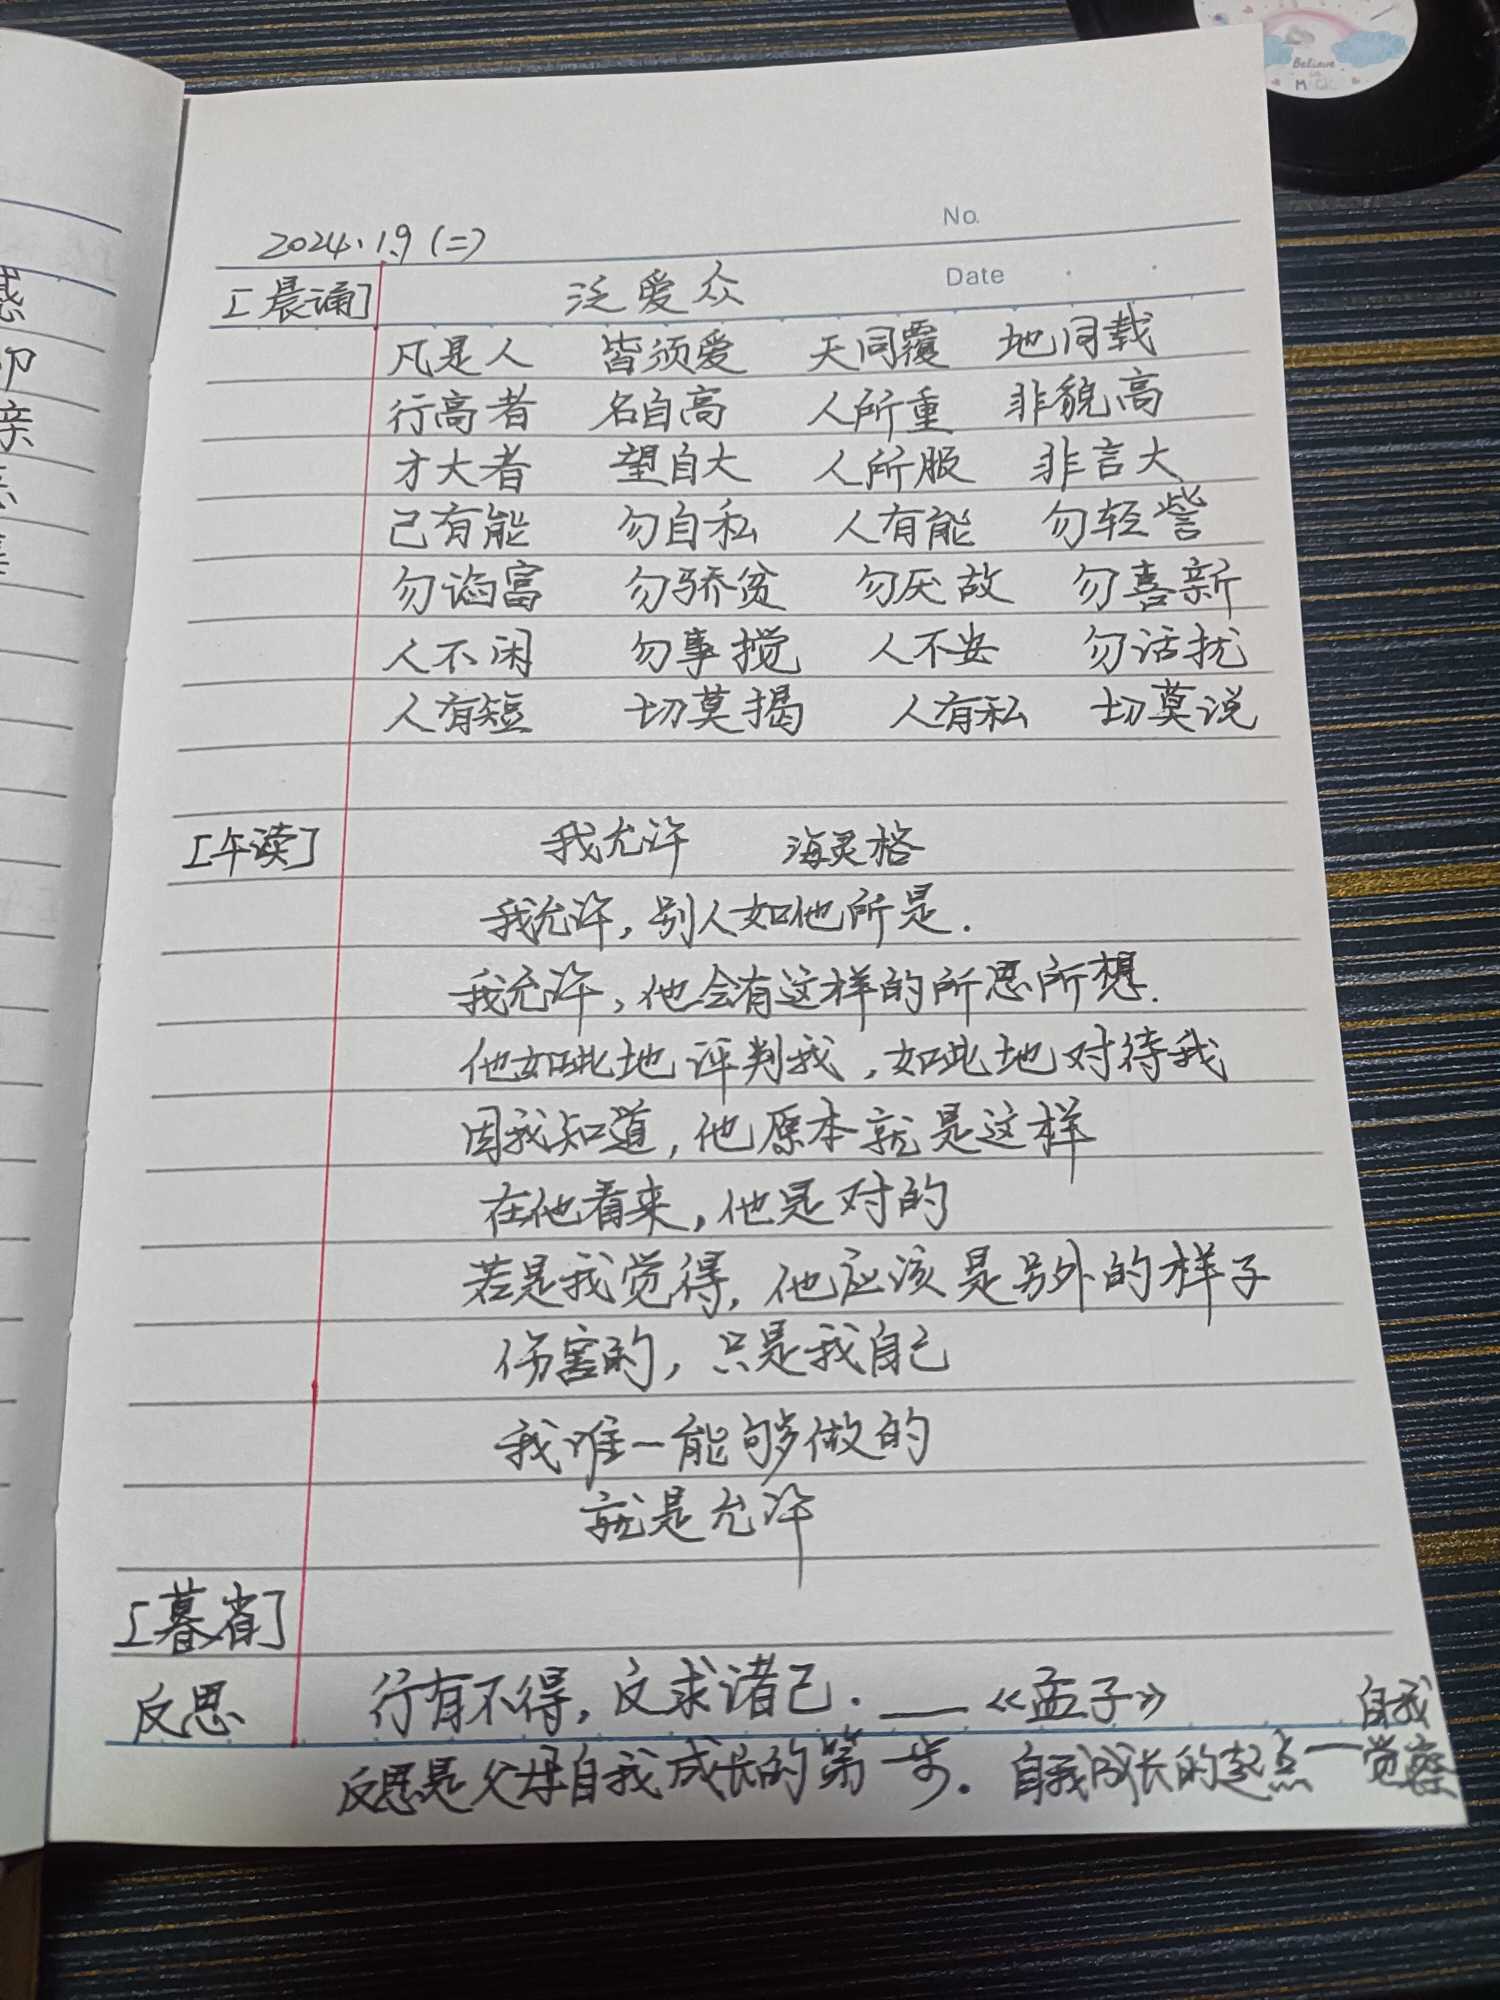 Believe
in
MAGIC
No.
2024.1.9(二)
Date
[晨诵] 泛爱众
凡是人 皆须爱 天同覆 地同载
行高者 名自高 人所重 非貌高
才大者 望自大 人所服 非言大
己有能 勿自私 人有能 勿轻訾
勿谄富 勿骄贫 勿厌故 勿喜新
人不闲 勿事搅 人不安 勿话扰
人有短 切莫揭 人有私 切莫说
[午读] 我允许 海灵格
我允许,别人如他所是.
我允许,他会有这样的所思所想.
他如此地评判我,如此地对待我
因我知道,他原本就是这样
在他看来,他是对的
若是我觉得,他应该是另外的样子
伤害的,只是我自己
我唯一能够做的
就是允许
[暮省]
反思 行有不得,反求诸己.——《孟子》
反思是父母自我成长的第一步.自我成长的起点一自我觉察